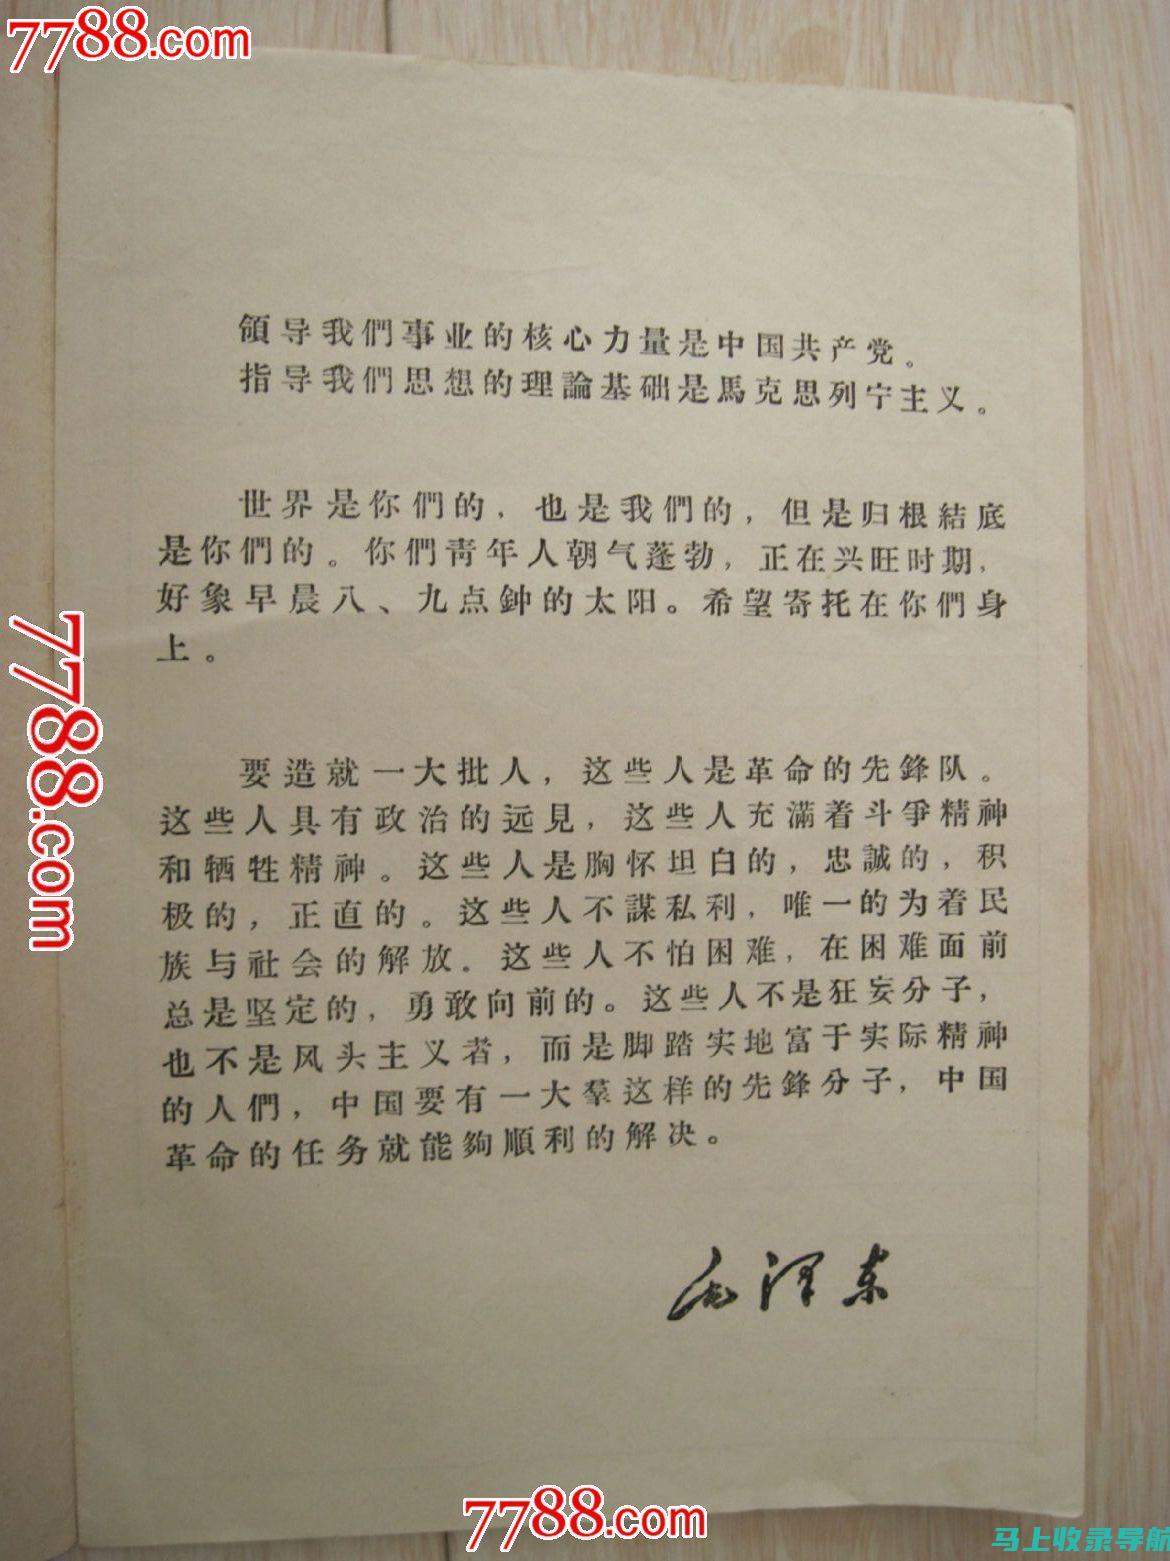 7788.com
領导我們事业的核心力量是中国共产党。
指导我們思想的理論基础是馬克思列宁主义。
世界是你們的，也是我們的，但是归根結底
是你們的。你們青年人朝气蓬勃，正在兴旺时期，
好象早晨八、九点鈡的太阳。希望寄托在你們身
上。
7788.com
要造就一大批人，这些人是革命的先鋒队。
这些人具有政治的远見，这些人充滿着斗爭精神
和牺牲精神。这些人是胸怀坦白的，忠誠的，积
极的，正直的。这些人不謀私利，唯一的为着民
族与社会的解放。这些人不怕困难，在困难面前
总是坚定的，勇敢向前的。这些人不是狂妄分子，
也不是风头主义者，而是脚踏实地富于实际精神
的人們，中国要有一大羣这样的先鋒分子，中国
革命的任务就能夠順利的解决。
毛泽东
7788.com
马上收录导航